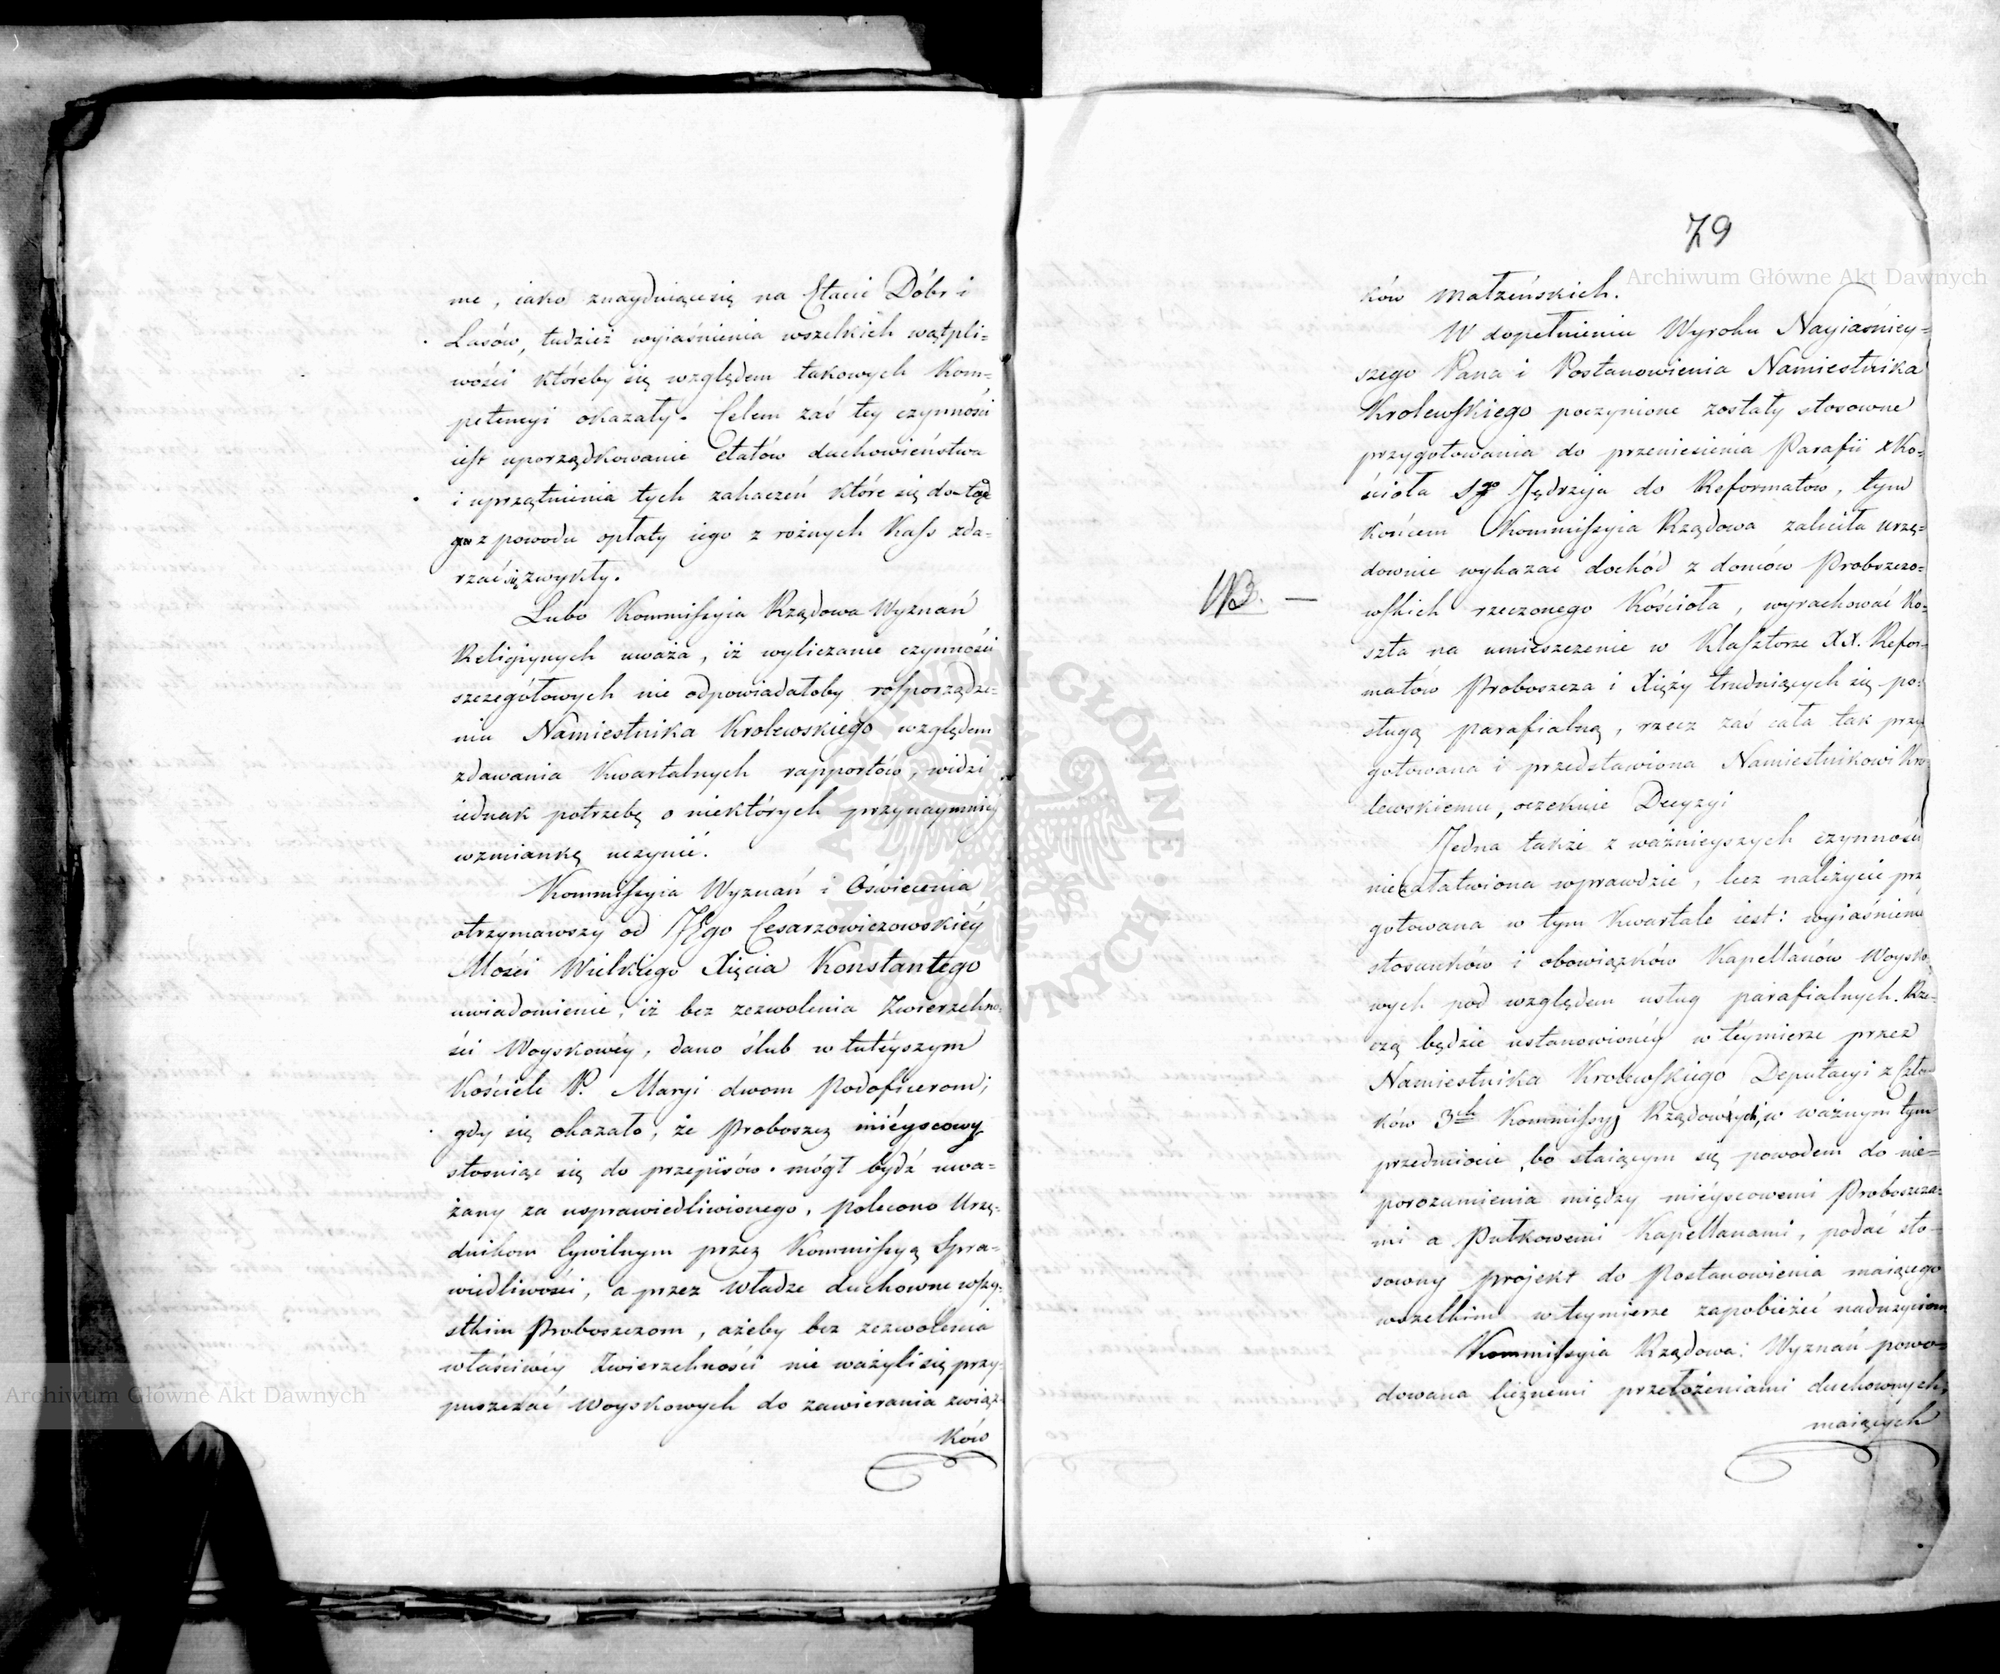 me, iako znayduiące się na Etacie Dóbr i
Lasów, tudzież wyiaśnienia wszelkich wątpli-
wości któreby się względem takowych Kom-
petencyi okazały. Celem zaś tey czynności
iest uporządkowanie etatów duchowieństwa
i uprzątnienia tych zahaczeń które się dotąd
z powodu opłaty iego z rożnych Kass zda-
rzać się zwykły.
Lubo Kommissyia Rządowa Wyznań
Religiynych uważa, iż wyliczanie czynności
szczegółowych nie odpowiadałoby rosporządze-
niu Namiestnika Krolewskiego względem
zdawania Kwartalnych rapportów, widzi
iednak potrzebę o niektórych przynaymniéy
wzmiankę uczynić.
Kommissyia Wyznań i Oświecenia
otrzymawszy od JEgo Cesarzowiczowskiéy
Mości Wielkiego Xięcia Konstantego
uwiadomienie, iż bez zezwolenia Zwierzchno-
ści Woyskowéy, dano ślub w tutéyszym
Kościele P. Maryi dwom Podoficerom;
gdy się okazało, że Proboszcz miéyscowy
stosuiąc się do przepisów mógł bydź uwa-
żany za usprawiedliwionego, polecono Urzę-
dnikom Cywilnym przez Kommissyą Spra-
wiedliwości, a przez Władze duchowne wszy-
stkim Proboszczom, ażeby bez zezwolenia
właściwéy Zwierzchności nie ważyli się przy-
puszczać Woyskowych do zawierania związ-
ków
79
ków Małżeńskich.
W dopełnieniu Wyroku Nayiaśniey-
szego Pana i Postanowienia Namiestnika
Krolewskiego poczynione zostały stosowne
przygotowania do przeniesienia Parafii z Ko-
ścioła Sgo Jędrzeja do Reformatów, tym
końcem Kommissyia Rządowa zaleciła urzę-
downie wykazać dochód z domów Probszczo-
NB. —
wskich rzeczonego Kościoła, wyrachować Ko-
szta na umieszczenie w Klasztorze XX. Refor-
matów Proboszcza i Xięży trudniących się po-
sługą parafialną, rzecz zaś cała tak przy
gotowana i przedstawiona Namiestnikowi Kro
lewskiemu, oczekuie Decyzyi
Jedna także z ważnieyszych czynności
niezałatwiona wprawdzie, lecz należycie prz
gotowana w tym Kwartale iest: wyiaśnienie
stosunków i obowiązków Kapellanów Woysko
wych pod względem usług parafialnych. Rze-
czą będzie ustanowionéy w téymierze przez
Namiestnika Krolewskiego Deputacyi z Człon
ków 3ch Kommissyj Rządowych, w ważnym tym
przedmiocie, bo staiącym się powodem do nie-
porozumienia między miéyscowemi Proboszcza-
mi a Pułkowemi Kapellanami, podać sto-
sowny projekt do Postanowienia maiącego
wszelkim w teymierze zapobieżeć nadużyciom
Kommissyia Rządowa Wyznań powo-
dowana licznemi przełożeniami duchownych,
maiących
Archiwum Główne Akt Dawnych
Archiwum Główne Akt Dawnych
ARCHIWUM GŁÓWNE AKT DAWNYCH